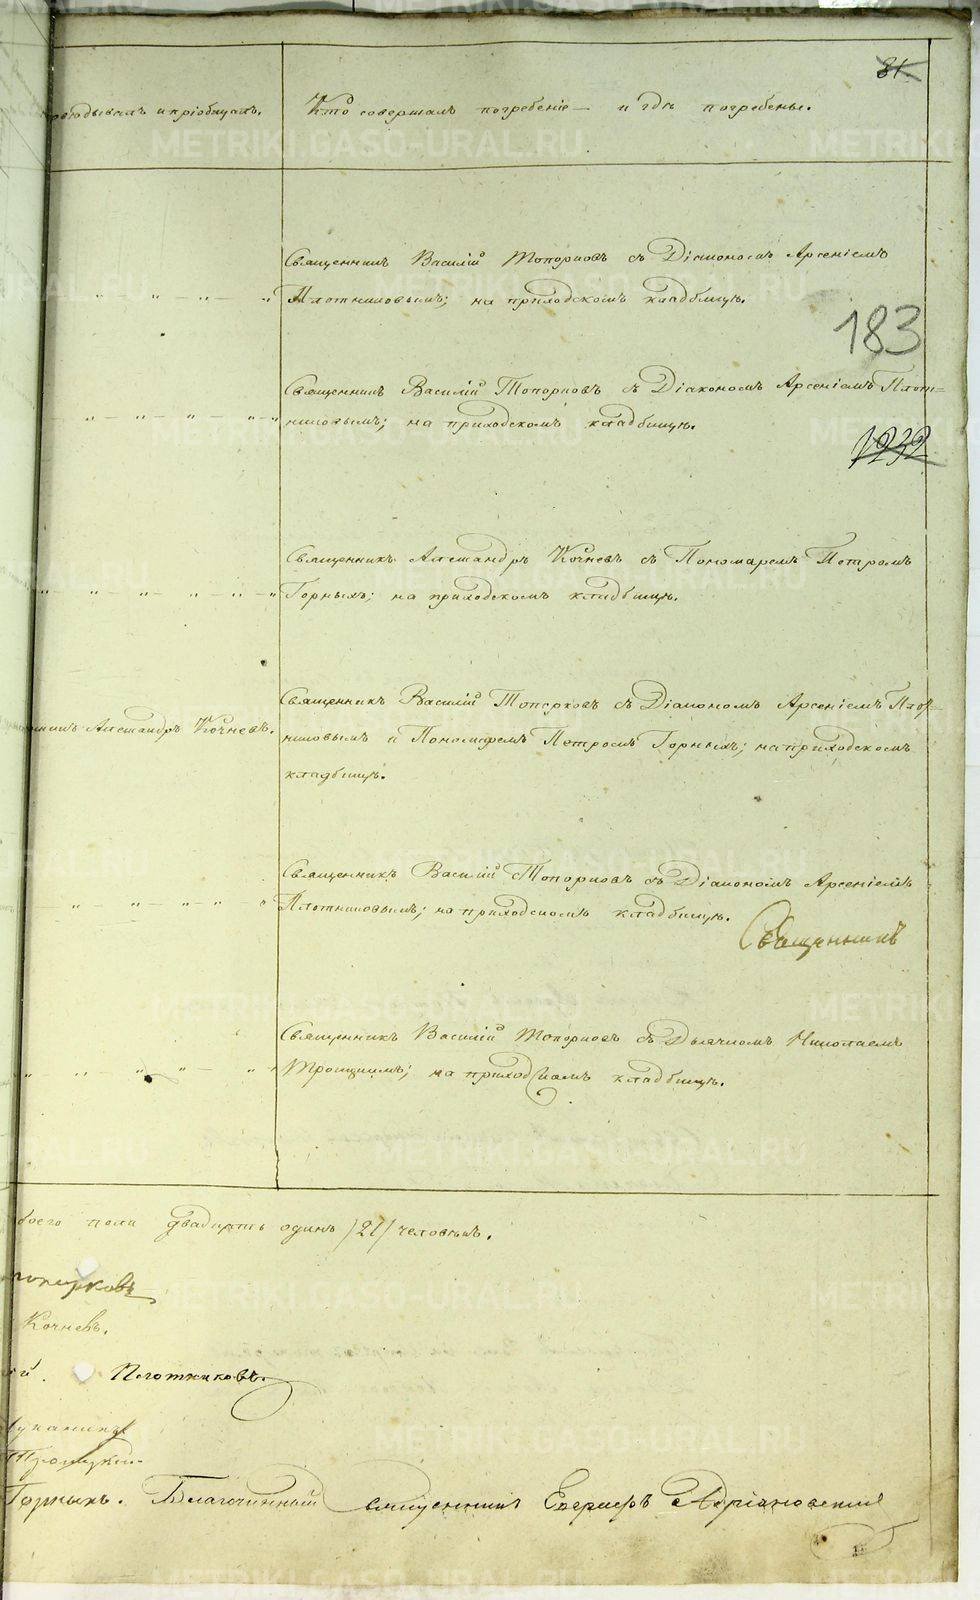 81.
исповѣдывалъ и пріобщалъ.
Кто совершалъ погребеніе — и гдѣ погребены.
Священникъ Василій Топорковъ съ Діакономъ Арсеніемъ
Плотниковымъ; на приходскомъ кладбищѣ.
183
Священникъ Василій Топорковъ съ Діакономъ Арсеніемъ Плот=
никовымъ; на приходскомъ кладбищѣ.
1232
Священникъ Александръ Кочневъ съ Пономаремъ Петромъ
Горныхъ; на приходскомъ кладбищѣ.
Священникъ Василій Топорковъ съ Діакономъ Арсеніемъ Плот-
Александръ Кочневъ.
никовымъ и Пономаремъ Петромъ Горныхъ; на приходскомъ
кладбищѣ.
Священникъ Василій Топорковъ съ Діакономъ Арсеніемъ
Плотниковымъ; на приходскомъ кладбищѣ.
Священникъ
Священникъ Василій Топорковъ съ Дьячкомъ Николаемъ
Троицкимъ; на приходскомъ кладбищѣ.
боего пола двадцать одинъ /21/ человѣкъ.
Топорковъ
Кочневъ.
Плотниковъ.
Троицкій.
Горныхъ. Благочинный Священникъ Адріановскій
METRIKI.GASO-URAL.RU